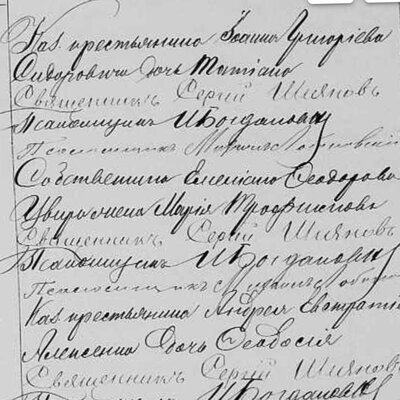 Каз. крестьянина Іоанна Григоріева
Сидоровича дочь Татіана
Священникъ Сергій Шияновъ
Псаломщикъ И Богданович
Псаломщикъ
Собственника Емеліана Ѳеодорова
Марія Трофимова
Священникъ Сергій Шияновъ
Псаломщикъ И Богданович
Псаломщикъ
Каз. крестьянина Андрея Евстратіева
Алексеенка дочь Ѳеодосія
Священникъ Сергій Шияновъ
Псаломщикъ И Богданович